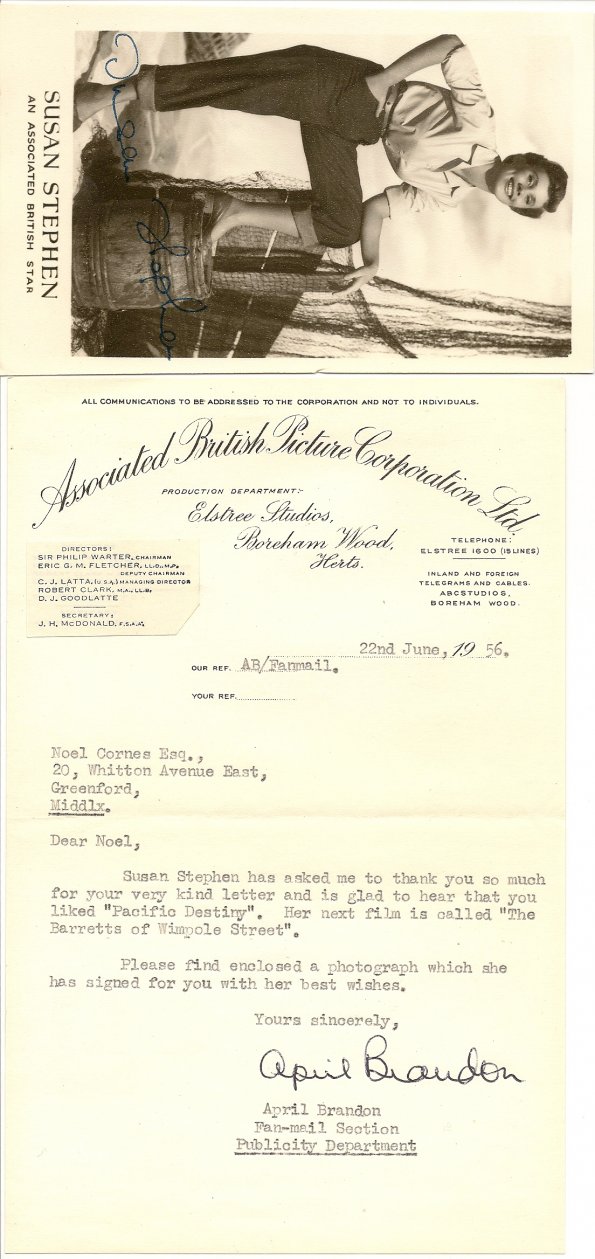 Susan Stephen
SUSAN STEPHEN
AN ASSOCIATED BRITISH STAR
ALL COMMUNICATIONS TO BE ADDRESSED TO THE CORPORATION AND NOT TO INDIVIDUALS.
Associated British Picture Corporation Ltd.
PRODUCTION DEPARTMENT:-
Elstree Studios,
Boreham Wood,
Herts.
TELEPHONE:
ELSTREE 1600 (15 LINES)
INLAND AND FOREIGN
TELEGRAMS AND CABLES.
ABCSTUDIOS,
BOREHAM WOOD.
DIRECTORS:
SIR PHILIP WARTER, CHAIRMAN
ERIC G. M. FLETCHER, LL.D., M.P.,
DEPUTY CHAIRMAN
C. J. LATTA, (U.S.A.) MANAGING DIRECTOR
ROBERT CLARK, M.A., LL.B,
D. J. GOODLATTE
SECRETARY:
J. H. McDONALD, F.S.A.A.
22nd June, 19 56.
OUR REF. AB/Fanmail.
YOUR REF.
Noel Cornes Esq.,
20, Whitton Avenue East,
Greenford,
Middlx.
Dear Noel,
Susan Stephen has asked me to thank you so much
for your very kind letter and is glad to hear that you
liked "Pacific Destiny". Her next film is called "The
Barretts of Wimpole Street".
Please find enclosed a photograph which she
has signed for you with her best wishes.
Yours sincerely,
April Brandon
April Brandon
Fan-mail Section
Publicity Department